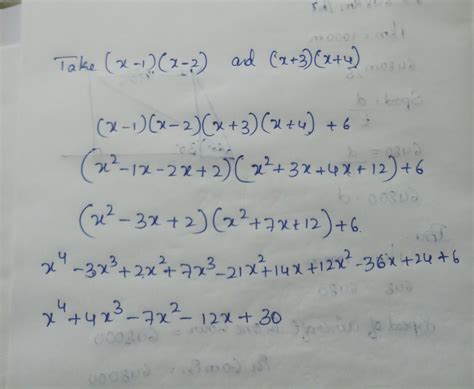 Take (x-1)(x-2) ad (x+3)(x+4)
(x-1)(x-2)(x+3)(x+4) + 6
(x²-1x-2x+2)(x²+3x+4x+12)+6
(x²-3x+2)(x²+7x+12)+6.
x⁴-3x³+2x²+7x³-21x²+14x+12x²-36x+24+6
x⁴+4x³-7x²-12x+30